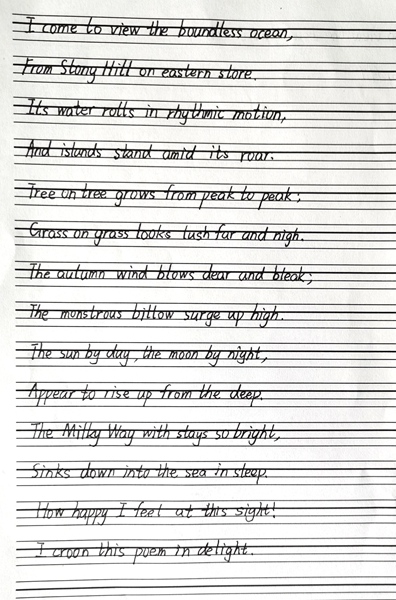 I come to view the boundless ocean,
From Stony Hill on eastern store.
Its water rolls in rhythmic motion,
And islands stand amid its roar.
Tree on tree grows from peak to peak;
Grass on grass looks lush far and nigh.
The autumn wind blows dear and bleak;
The monstrous billow surge up high.
The sun by day, the moon by night,
Appear to rise up from the deep.
The Milky Way with stays so bright,
Sinks down into the sea in sleep.
How happy I feel at this sight!
I croon this poem in delight.